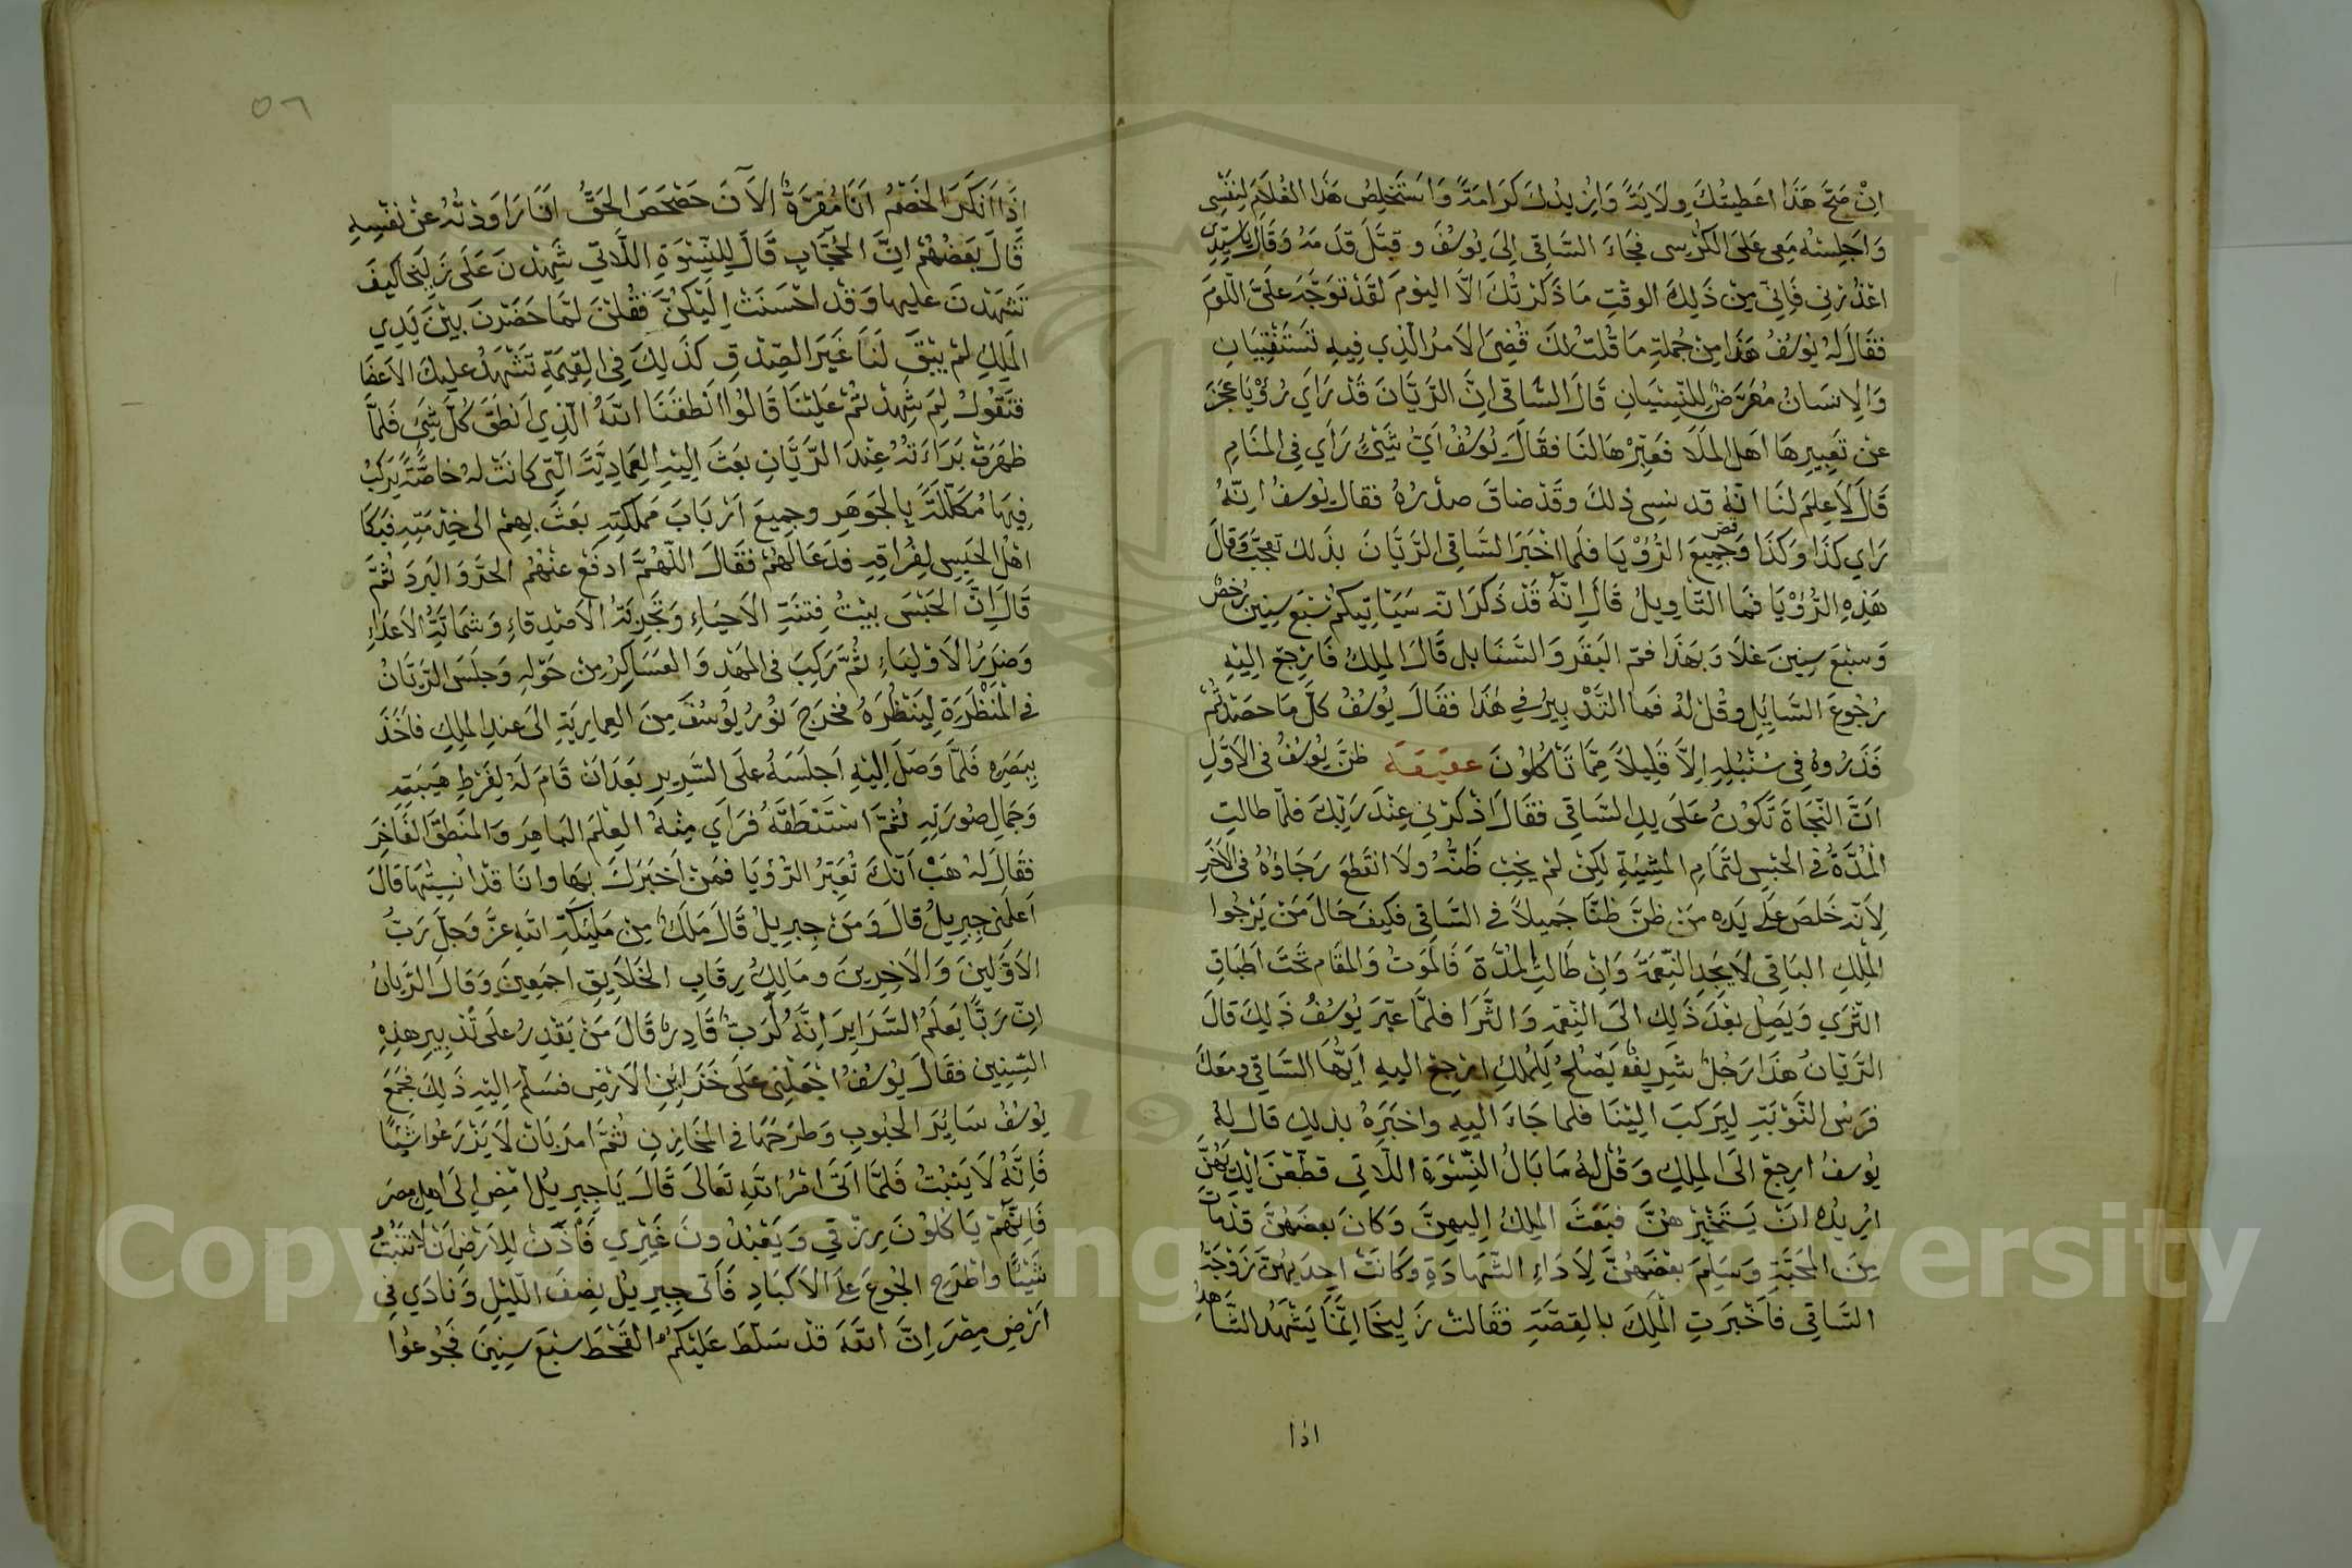 اِنْ صَحَّ هَذَا اعَطَيتُكَ وِلَايَةً وَازِيدُكَ كَرَامَةً وَاسَتَخلِصُ هَذَا الغُلَامَ لِنَفْسِى
وَاَجلِسُهُ مَعِى عَلىَ الكُرْسِى فجَاءَ السَّاقِى اِلىَ يُوسُفَ وقبَّلَ قدَمَهُ وَقَالَ يَاسَيِّدِى
اعْذُرْنِى فَاِنِّى مِنْ ذَلِكَ الوقْتِ مَا ذَكَرْتُكَ اِلَّا اليَوْمَ لَقَدْ تَوَجَّهَ عَلَىَّ اللّوْمَ
فقَالَ لَهُ يوُسُفُ هَذَا مِنْ جُملَةِ مَا قُلتُ لَكَ قُضِىَ الاَمرُ الَّذِى فِيهِ تَسْتَفْتِيَانِ
وَالاِنسَانُ مُعَرَّضٌ لِلنِّسْيَانِ قَالَ السَّاقِى اِنَّ الرَّيَّانَ قَدْ رَاَي رُؤْيَا عَجَزَ
عَنْ تَعبِيرِهَا اَهلُ المَلَا فَعَبِّرْهَا لنَا فقَالَ يُوسُفُ اَيَّ شَيْئٍ رَاَي فِى المنَامِ
قَالَ لَا عِلمَ لنَا اَنّهُ قد نسِىَ ذلكَ وقَدْ ضاقَ صدْرُهُ فقال يُوسفُ اِنّهُ
رَاَي كذَا وَكَذَا وقصّ جَمِيعَ الرُّؤْيَا فلَمَا اخْبَرَ السَّاقِى الرَّيَّانَ بذَلكَ تعجّبَ وَقالَ
هَذِهِ الرُّؤْيَا فمَا التَّاوِيلُ قَالَ اِنّهُ قَدْ ذَكَرَ انّه سَيَاتِيكُمْ سَبْعَ سِنِينَ رُخصٌ
وَسبْعَ سِنِينَ غلَا وَبَهَذَا فسّر البَقَر وَالسَّنَابل قَالَ المَلِكُ فَارْجِعْ اِلَيْهِ
رُجُوعَ السَّايِلِ وقُلْ لَهُ فَمَا التَّدْبِيرُ فِي هَذَا فقَالَ يُوسُفُ كلّ مَا حصَدْتُمْ
فَذَرُوهُ فِى سُنْبُلِهِ اِلَّا قَلِيلاً مِمَّا تَاكُلوُنَ عقيقة ظنَّ يوُسُفُ فى الاَوَّلِ
اَنَّ النّجَاةَ تَكُوْنُ عَلَى يدِ السَّاقِى فقَالَ اذْكُرْنِى عِنْدَ رَبِّكَ فلمّا طالتِ
المُدَّةُ فى الحبْسِ لتَمَامِ المشِيْئةِ لكِنْ لمْ يخِبْ ظَنُّهُ ولَا انْقطعَ رَجَاؤُهُ فى الاَخَرِ
لِاَنّهُ خَلصَ علَى يَدِهِ مَنْ ظنَّ ظنًّا جَميلاً فى السَّاقِى فكَيفَ حَالَ مَنْ يَرْجُوا
المَلِكِ البَاقِى لَا يَجِدِ النِّعمَةَ وَاِنْ طَالتِ المُدّةَ فَالمَوتْ وَالمقَام تَحْتَ اَطبَاقِ
الثّرَي وَيَصِلْ بعْدَ ذَلِكَ الىَ النّعِيْمِ وَالثَّرَا فلمَّا عبّرَ يُوسُفُ ذَلِكَ قَالَ
الرّيّانُ هَذَا رَجُلٌ شَرِيفٌ يَصْلُحُ لِلمُلكِ ارْجِعْ اليهِ اَيُّهَا السَّاقِى ومعَكَ
فرَسُ النَّوْبَةِ لِيَركَبَ اِليْنَا فلما جَاءَ اليهِ واخبَرَهُ بذلِكِ قالَ لهُ
يوُسفُ ارِجعْ الىَ المَلِكِ وَقُلْ لهُ مَا بَالُ النِّسْوَةِ اللَّاتِى قطّعْنَ اَيْدِيَهُنّ
اُرِيدُ انْ يَسْتَخْبِرَهُنَّ فبَعَثَ المَلِكُ اِليهِنَّ وَكانَ بعضَهُنَّ قَدْ مَاتَ
مِنَ المحَبَّةِ وَسَلِمَ بعْضهُنَّ لِاَدَاءِ الشّهَادَةِ وكَانَتْ اِحِدَيهُنَّ زَوْجَةُ
السَّاقِى فاَخْبَرَتِ الْمَلِكَ بالِقصَّةِ فقَالتْ زَلِيخَا اِنّمَا يَشْهَدُ الشَّاهِدُ
اذا
٥٦
اِذَا اَنكَرَ الخَصْمُ اَنَا مُقرَّةٌ الْآنَ حَصْحَصَ الحَقُّ اَنَا رَاوَدْتُهُ عَنْ نفْسِهِ
قَالَ بَعْضُهُمْ اِنَّ الحُجَّابِ قَالَ لِلنِّسْوَةِ اللَّاتِي شَهِدْنَ عَلَى زَلِيخَا كيفَ
تَشهَدْنَ عليها وَقدْ احْسَنَتْ اِليْكُنَّ فقُلنَ لمّا حَضَرْنَ بيْنَ يَدِيِ
المَلِكِ لمْ يبْقَ لنَا غَيرَ الصِّدْقِ كذَلِكَ فِى القِيمَةِ تَشْهَدُ عليكَ الاَعضَا
فتقُولُ لِمَ شَهِدْتُمْ عَلَيْنَا قَالُوا اَنْطَقَنَا اللهُ الَّذِي اَنطَقَ كُلَّ شَيْئٍ فَلمَّا
ظهَرَتْ بَرَاءَتهُ عِنْدَ الرَّيَّانِ بعَثَ اِليْهِ العِمَادِيَّةَ الَّتِى كانَتْ لهُ خاصَّةً يَركَبُ
فِيهَا مُكَلّلَةً بِالجَوَهَرِ وجَمِيعَ اَرْبَابَ مَملكَتِهِ بعَثَ بِهِمْ الى خِدْمَتِهِ فبَكَا
اهْلُ الحَبِسِ لِفُرَاقِهِ فدَعَا لَهُمْ فقَالَ اللّهُمَّ ادفَعْ عنْهُمُ الحَرَّ وَالبَردَ ثُمَّ
قَالَ اِنَّ الحَبْسَ بيْتُ فِتنَةِ الاَحيَاءِ وَتَجْرِبَةُ الاَصْدِقَاءِ وَشَمَاتَةُ الاَعدَاءِ
وَضَرَرُ الاَوْلِيَاءِ ثُمَّ رَكِبَ فى المَهْدِ وَالعسَاكِرُ مِنْ حَوْلِهِ وَجلَسَ الرَّيَّانُ
فى المَنْظَرَةِ لِيَنْظُرَهُ فخرَجَ نوُرُ يوُسُفَ مِنَ العِمَارِيّةِ الىَ عندِ المَلِكِ فاَخَذَ
بِبَصَرِهِ فَلَمَّا وَصَلَ اِليْهِ اَجلَسَهُ علَى السَّرِيرِ بَعْدَ اَنْ قَامَ لَهُ لِفَرْطِ هَيبَتِهِ
وَجَمَالِ صُورَتِهِ ثُمَّ اسْتَنْطَقَهُ فرَاَي مِنْهُ العِلمَ المَاهِرَ وَالمَنطقَ الفَاخِرَ
فقَالَ لهُ هَبْ اَنّكَ تُعَبِّرُ الرُّؤيَا فَمَنْ اَخبَرَكَ بِهَا وانَا قدْ انُسِيتُهَا قَالَ
اَعلَمَنِى جِبرِيلُ قالَ وَمَنْ جِبرِيلُ قَالَ مَلَكٌ مِنْ مَليَكَةِ اللهِ عزَّ وَجَلَّ رَبُّ
الاَوَّلِينَ وَالاَخِرِينَ ومَالِكُ رِقَابِ الخَلَايِقِ اجمَعِينَ وَقالَ الرَّيانُ
اِنّ رَبًّا يَعلَمُ السّرَايِرَ اِنَّهُ لَرَبٌّ قَادِرٌ قَالَ مَنْ يَقْدِرُ علَى تَدْبِيرِ هذِهِ
السّنِينِ فقَالَ يوُسُفُ اجْعَلْنِى عَلَى خَزَايِنِ الاَرْضِ فسَلّمَ اِليْهِ ذَلِكَ فجَمَعَ
يُوسُفُ سَايِرَ الحُبُوبِ وَطرَحَهَا فى المَخَازِنِ ثُمَّ امَرَ بَانْ لَا يَزْرَعُوا شَيْئًا
فَاِنَّهُ لَا يَنْبُتُ فَلمَّا اَتَى اَمْرُ اللهِ تَعَالىَ قَالَ يَا جِبرِيلُ امْضِ اِلىَ اهلِ مِصرَ
فَاِنَّهُمْ يَاكُلوُنَ رِزْقِي وَيَعْبُدُونَ غَيْرِي فَاَذِّنْ لِلاَرْضِ اَنْ لَا تُنْبِتُ
شَيْئًا واطْرَحِ الجُوعَ علَى الاَكبَادِ فَاَتَى جِبرِيلُ نِصفَ اللّيْلِ وَنَادَي فِى
اَرْضِ مِصْرَ اِنَّ اللهَ قدْ سَلّطَ عَلَيْكُمُ القَحْطَ سَبْعَ سِنِينَ فجُوعُوا
Copyright © King Saud University